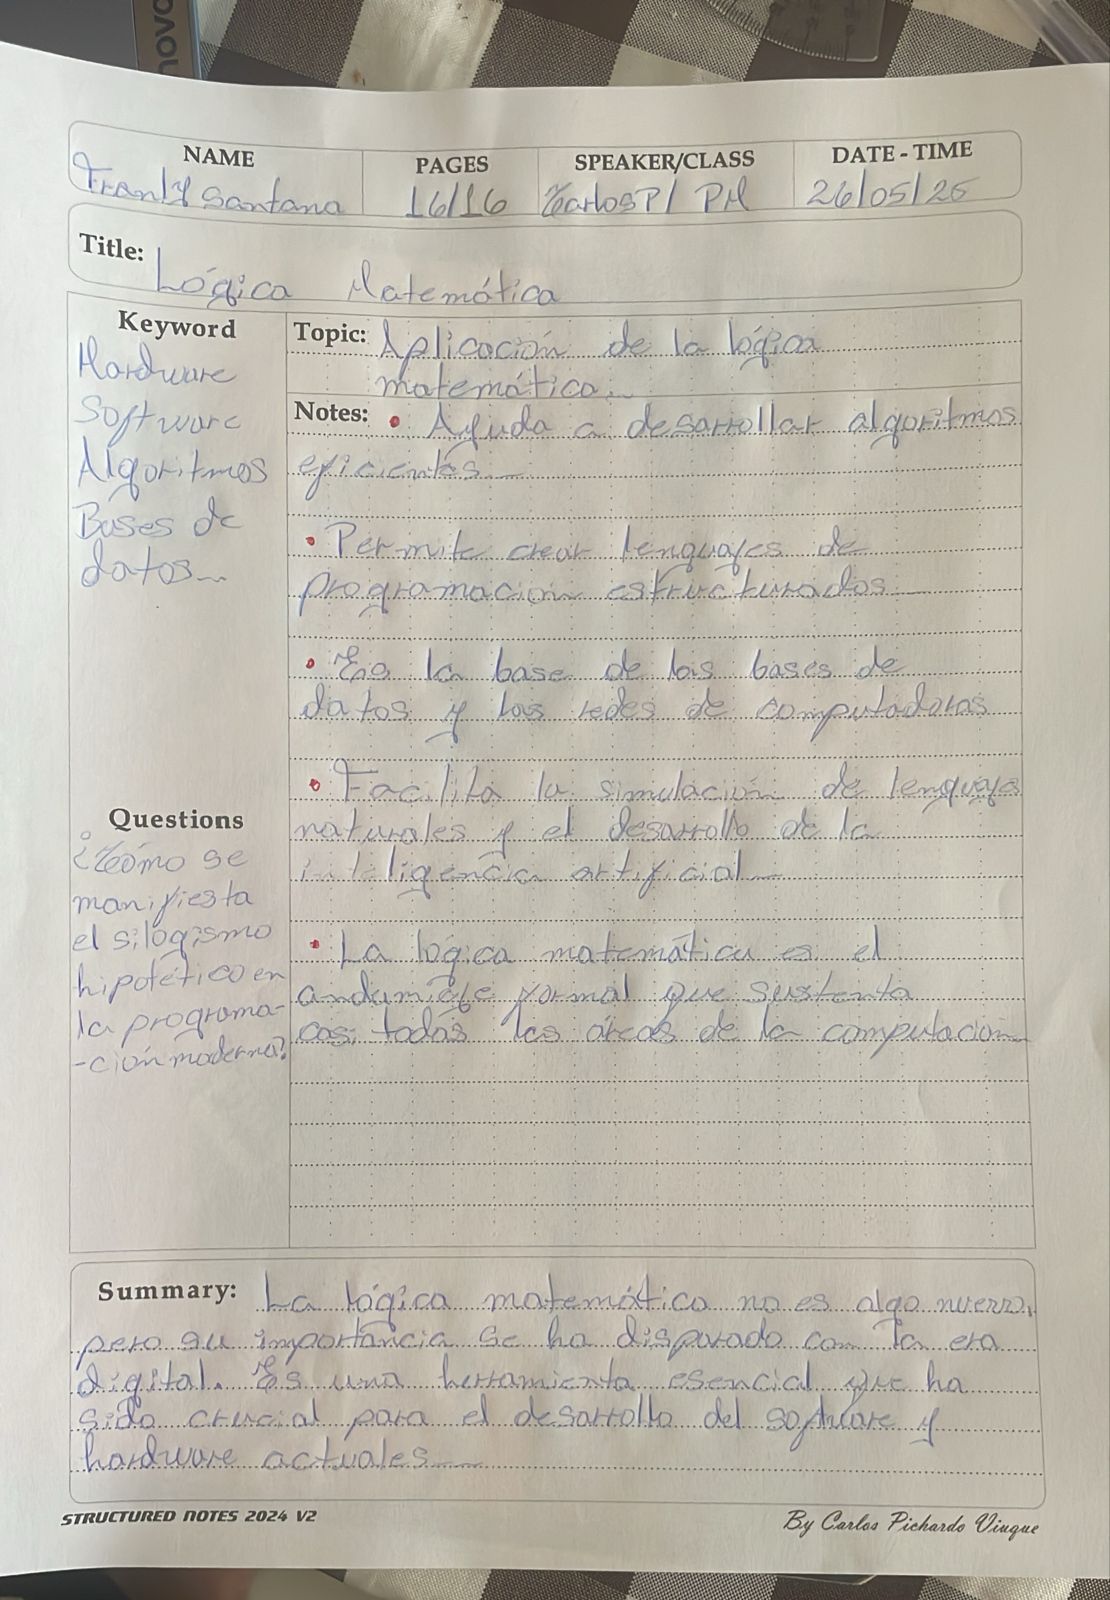 novo
NAME
PAGES
SPEAKER/CLASS
DATE - TIME
Santana
16/16
CarlosP/ PM
26/05/25
Title:
Lógica Matemática
Keyword
Hardware
Software
Algoritmos
Bases de
datos
Topic: Aplicación de la lógica
matemática.
Notes: • Ayuda a desarrollar algoritmos
eficientes
• Permite crear lenguajes de
programación estructurados
• Es la base de las bases de
datos y las redes de computadoras
• Facilita la simulación de lenguajes
naturales y el desarrollo de la
inteligencia artificial
• La lógica matemática es el
andamiaje formal que sustenta
casi todas las áreas de la computación
Questions
¿Cómo se
manifiesta
el silogismo
hipotético en
la programa-
-ción moderna?
Summary: La lógica matemática no es algo nuevo,
pero su importancia se ha disparado con la era
digital. Es una herramienta esencial que ha
sido crucial para el desarrollo del software y
hardware actuales
STRUCTURED NOTES 2024 V2
By Carlos Pichardo Viuque